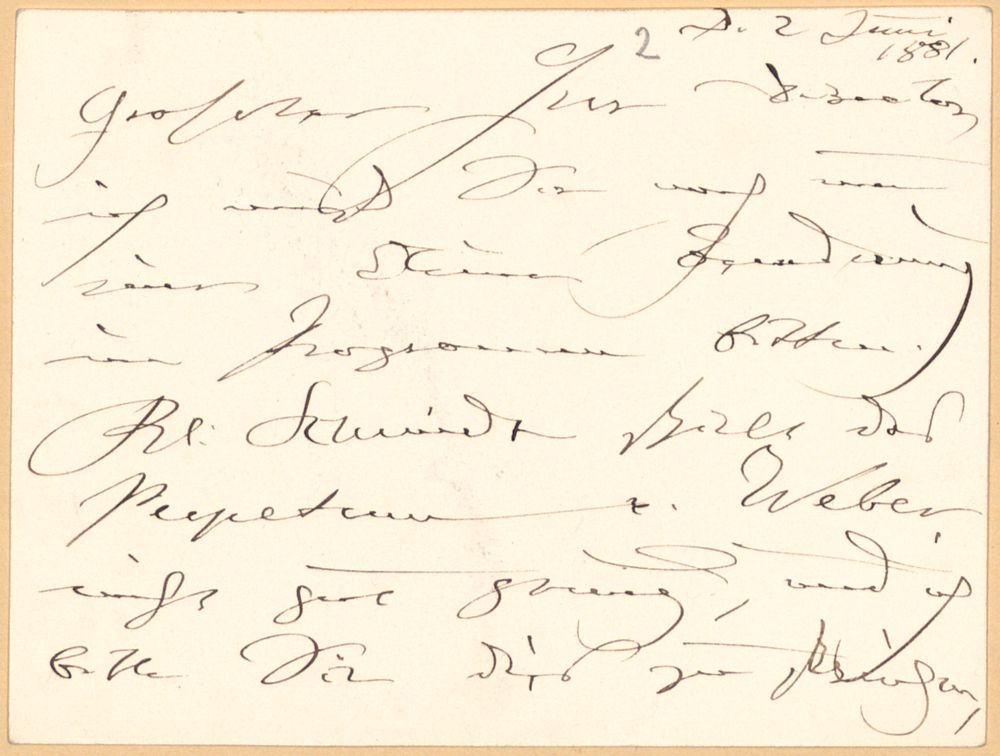 D. 2 Juni
1881.
2
Geehrter Herr Director
ich muß Sie noch um
eine kleine Veränderung
im Programm bitten.
Frl. Schmidt spielt das
Perpetuum v. Weber
nicht gut genug, und ich
bitte Sie dieß zu streichen,